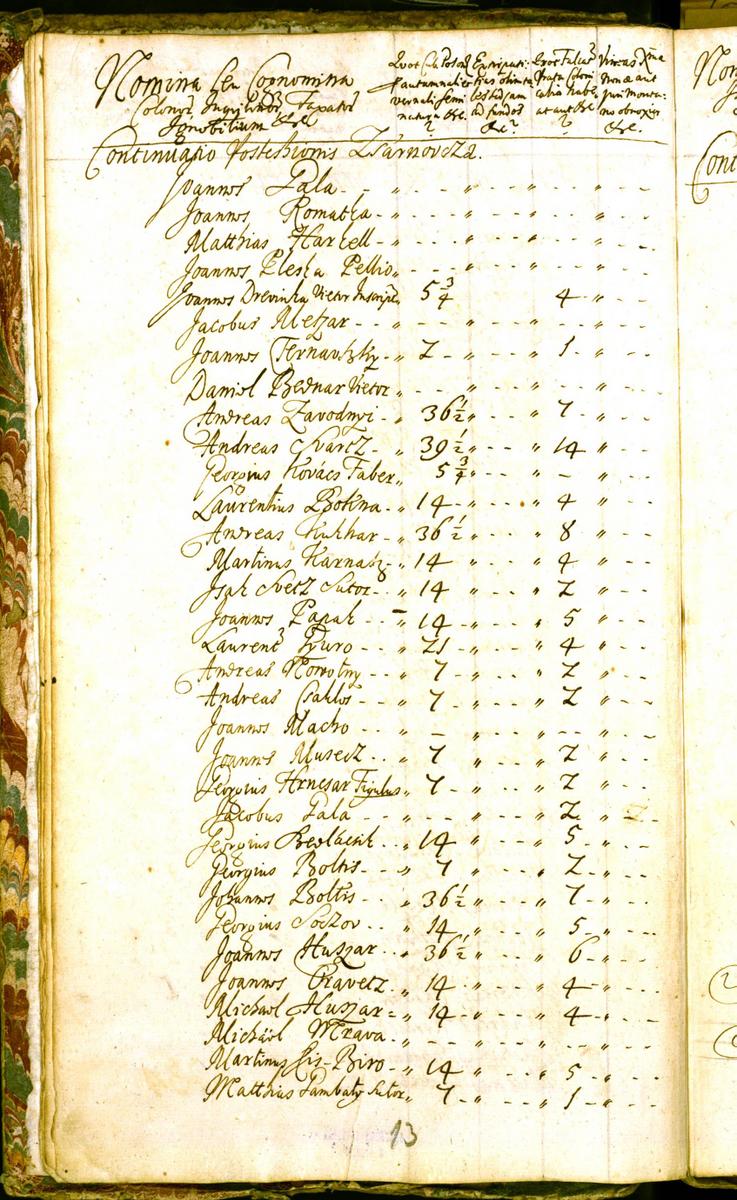 Nomina seu Cognomina
Colonor, Inquilinor, Taxator
Ignobilium &c
Quot Cub. Poson.
autumnali et
vernali semi
natura &c.
?
Extirpati:
tios
fundos
&c?
Quot Falcat
Prata Coloni
calia habe
at aut &c
?
Vineas
aut
juri monta:
no obnoxias
&c.
Continuatio Possessionis Zsarnovcza.
Joannes Pala - - „ - - - „ - - - „ - - „ - -
Joannes Romatka - „ - - - „ - - - „ - - „ - -
Matthias Hartell - „ - - - „ - - - „ - - „ - -
Joannes Pleska Pellio „ - - - „ - - - „ - - „ - -
Joannes Drevinka Vietor Inscript „ 5 3/4 4 - „ - -
Jacobus Metzar - - „ - - „ - - „ - - „ - -
Joannes Ternavszky - „ 2 - „ - - „ 1 - „ - -
Daniel Bednar Vietor „ - - „ - - „ - - „ - -
Andreas Zavodnyi - „ 36 1/2 „ - - „ 7 - „ - -
Andreas Svarcz - „ 39 1/2 „ - - „ 14 „ - -
Georgius Kovács Faber „ 5 3/4 „ - - „ - „ - -
Laurentius Bokina - „ 14 - „ - - „ 4 „ - -
Andreas Kuhhar - „ 36 1/2 „ - - „ 8 „ - -
Martinus Karnasz - „ 14 - „ - - „ 4 „ - -
Isak Svecz Sutor - „ 14 „ - - „ 2 „ - -
Joannes Papak - - „ 14 - „ - - „ 5 „ - -
Laurent Gyuro - - „ 21 - „ - - „ 4 „ - -
Andreas Novotny - „ 7 - „ - - „ 2 „ - -
Andreas Csaklos - „ 7 - „ - - „ 2 „ - -
Joannes Macho - - „ - „ - - „ - - „ - -
Joannes Musecz - „ 7 „ - - „ 2 - „ - -
Georgius Hrnesar Figulus „ 7 - „ - - „ 2 „ - -
Jacobus Pala - - „ - - „ - - „ 2 - „ - -
Georgius Bedlacsik - - „ 14 „ - - „ 5 „ - -
Georgius Boltis - - „ 7 „ - - „ 2 - „ - -
Johannes Boltis - - „ 36 1/2 „ - - „ 7 - „ - -
Georgius Soczov - - „ 14 „ - - „ 5 - „ - -
Joannes Huszar - - „ 36 1/2 „ - - „ 6 - „ - -
Joannes Pravecz - „ 14 „ - - „ 4 - „ - -
Michael Huszar - „ 14 „ - - „ 4 - „ - -
Michael Mrava - „ - - „ - - „ - - „ - -
Martinus Kis-Biro - „ 14 „ - - „ 5 - „ - -
Matthias Pambaty Sutor „ 7 „ - - „ 1 - „ - -
13